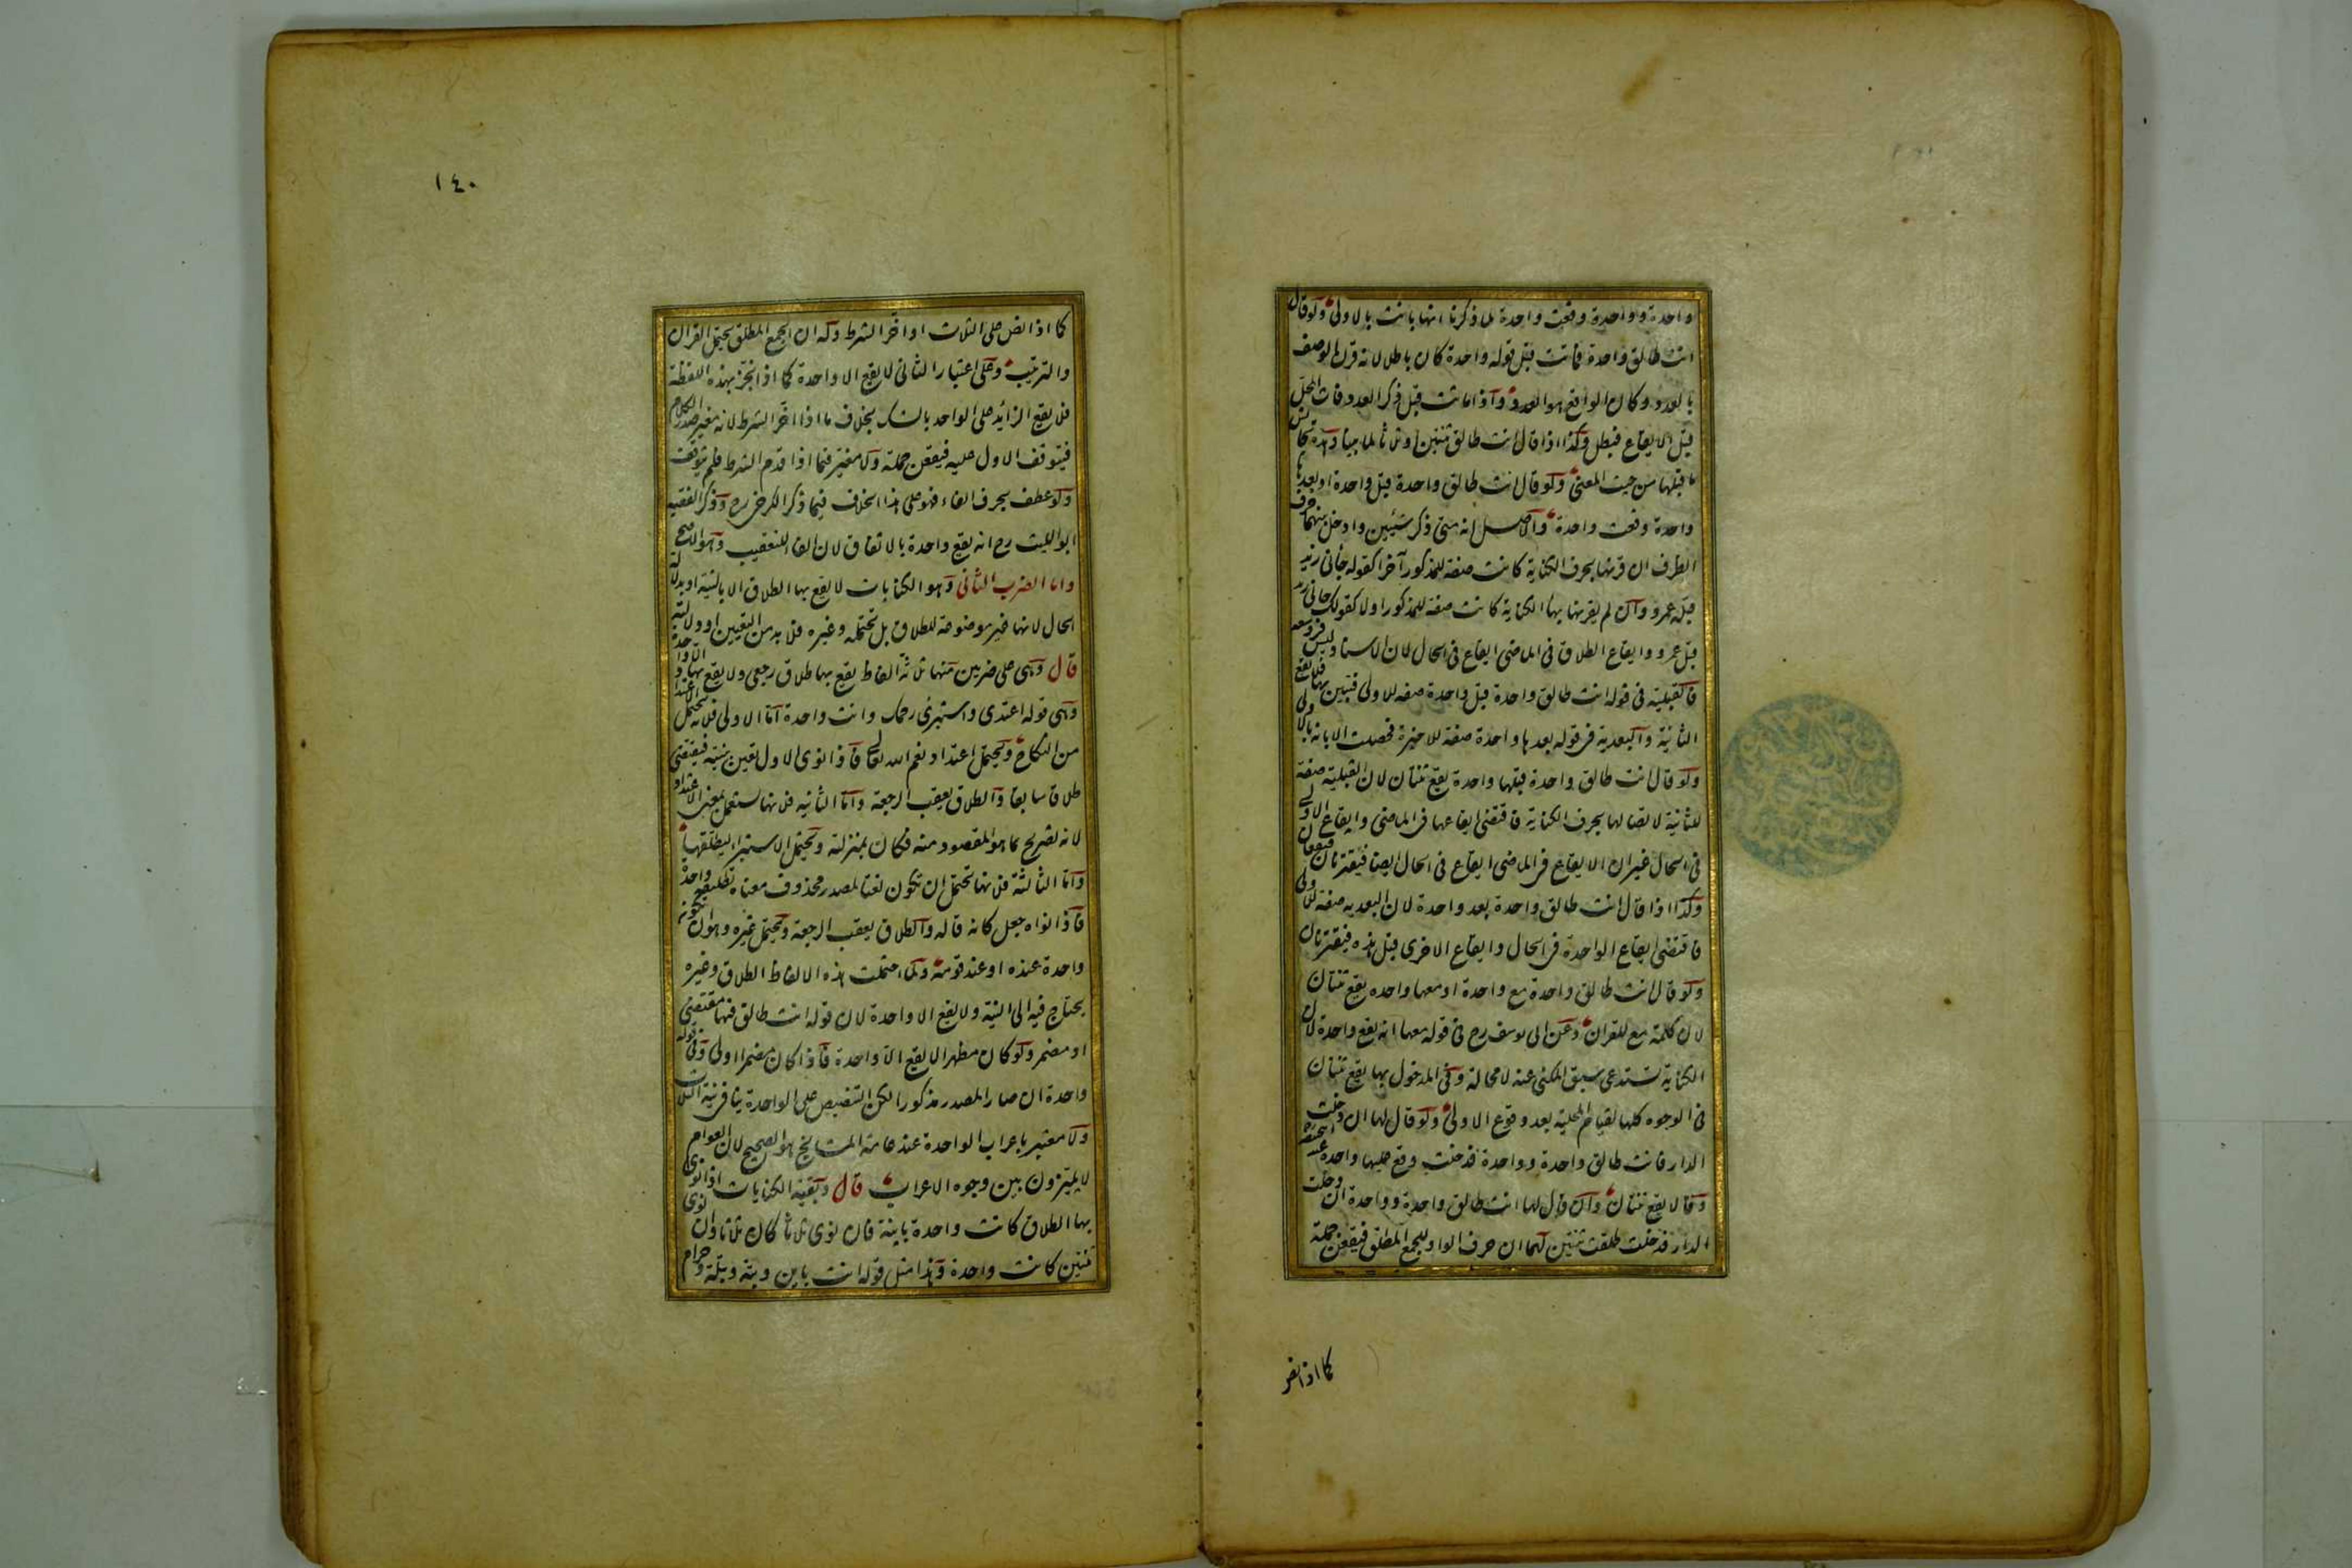 واحدة وواحدة وقعت واحدة لما ذكرنا انها بانت بالاولى ولو قال
انت طالق واحدة فماتت قبل قوله واحدة كان باطلا لانه قرن الوصف
بالعدد وكان الواقع هو العدد واذا ماتت قبل ذكر العدد فات المحل
قبل الايقاع فبطل وكذا اذا قال انت طالق ثنتين او ثلاثا لما بينا وهذه تجانس
ما قبلها من حيث المعنى ولو قال انت طالق واحدة قبل واحدة او بعدها
واحدة وقعت واحدة والاصل انه متى ذكر شيئين وادخل بينهما حرف
الظرف ان قرنها بحرف الكناية كانت صفة للمذكور آخرا كقوله جاءنى زيد
قبله عمرو وان لم يقرنها بهاء الكناية كانت صفة للمذكور اولا كقولك جاءنى زيد
قبل عمرو وايقاع الطلاق فى الماضى ايقاع فى الحال لان الاسناد ليس فى وسعه
فالقبلية فى قوله انت طالق واحدة قبل واحدة صفة للاولى فتبين بالاولى فلا يقع
الثانية والبعدية فى قوله بعدها واحدة صفة للاخيرة فحصلت الابانة بالاولى
ولو قال انت طالق واحدة قبلها واحدة يقع ثنتان لان القبلية صفة
للثانية لاتصالها بحرف الكناية فاقتضى ايقاعها فى الماضى وايقاع الاولى
فى الحال غير ان الايقاع فى الماضى ايقاع فى الحال ايضا فيقترنان فيقعان
وكذا اذا قال انت طالق واحدة بعد واحدة لان البعدية صفة للاولى
فاقتضى ايقاع الواحدة فى الحال وايقاع الاخرى قبل هذه فيقترنان
ولو قال انت طالق واحدة مع واحدة او معها واحده يقع ثنتان
لان كلمة مع للقران وعن ابى يوسف رح فى قوله معها انه يقع واحدة لان
الكناية تستدعى سبق المكنى عنه لا محالة وفى المدخول بها يقع ثنتان
فى الوجوه كلها لقيام المحلية بعد وقوع الاولى ولو قال لها ان دخلت
الدار فانت طالق واحدة وواحدة فدخلت وقع عليها واحدة عند ابى حنيفة
وقالا يقع ثنتان وان قال لها انت طالق واحدة وواحدة ان دخلت
الدار فدخلت طلقت ثنتين لهما ان حرف الواو للجمع المطلق فيقعن جملة
كما اذا نص
١٤٠
كما اذا نص على الثلاث او اخر الشرط وله ان الجمع المطلق يحتمل القران
والترتيب وعلى اعتبار الثانى لا يقع الا واحدة كما اذا نجز بهذه اللفظة
فلا يقع الزائد على الواحد بالشك بخلاف ما اذا اخر الشرط لانه مغير صدر الكلام
فيتوقف الاول عليه فيقعن جملة ولا مغير فيما اذا قدم الشرط فلم يتوقف
ولو عطف بحرف الفاء فهو على هذا الخلاف فيما ذكر الكرخى رح وذكر الفقيه
ابو الليث رح انه يقع واحدة بالاتفاق لان الفاء للتعقيب وهو الاصح
واما الضرب الثانى وهو الكنايات لا يقع بها الطلاق الا بالنية او بدلالة
الحال لانها غير موضوعة للطلاق بل تحتمله وغيره فلا بد من التعيين او دلالته
قال وهى على ضربين منها ثلاثة الفاظ يقع بها طلاق رجعى ولا يقع بها الا واحدة
وهى قوله اعتدى واستبرئى رحمك وانت واحدة اما الاولى فلانها تحتمل الاعتداد
من النكاح ويحتمل اعتداد نعم الله تعالى فاذا نوى الاول تعين بنيته فيقتضى
طلاقا سابقا والطلاق يعقب الرجعة واما الثانية فلانها تستعمل بمعنى الاعتداد
لانه تصريح بما هو المقصود منه فكان بمنزلته ويحتمل الاستبراء ليطلقها
واما الثالثة فلانها تحتمل ان تكون نعتا لمصدر محذوف معناه تطليقة واحدة
فاذا نواه جعل كانه قاله والطلاق يعقب الرجعة ويحتمل غيره وهو ان تكون
واحدة عنده او عند قومه ولما احتملت هذه الالفاظ الطلاق وغيره
يحتاج فيه الى النية ولا يقع الا واحدة لان قوله انت طالق فيها مقتضى
او مضمر ولو كان مظهرا لا يقع الا واحدة فاذا كان مضمرا اولى وفى قوله
واحدة ان صار المصدر مذكورا لكن التنصيص على الواحدة ينافى نية الثلاث
ولا معتبر باعراب الواحدة عند عامة المشايخ هو الصحيح لان العوام
لا يميزون بين وجوه الاعراب قال وبقية الكنايات اذا نوى
بها الطلاق كانت واحدة باينة فان نوى ثلاثا كان ثلاثا وان نوى
ثنتين كانت واحدة وهذا مثل قوله انت باين وبتة وبتلة وحرام